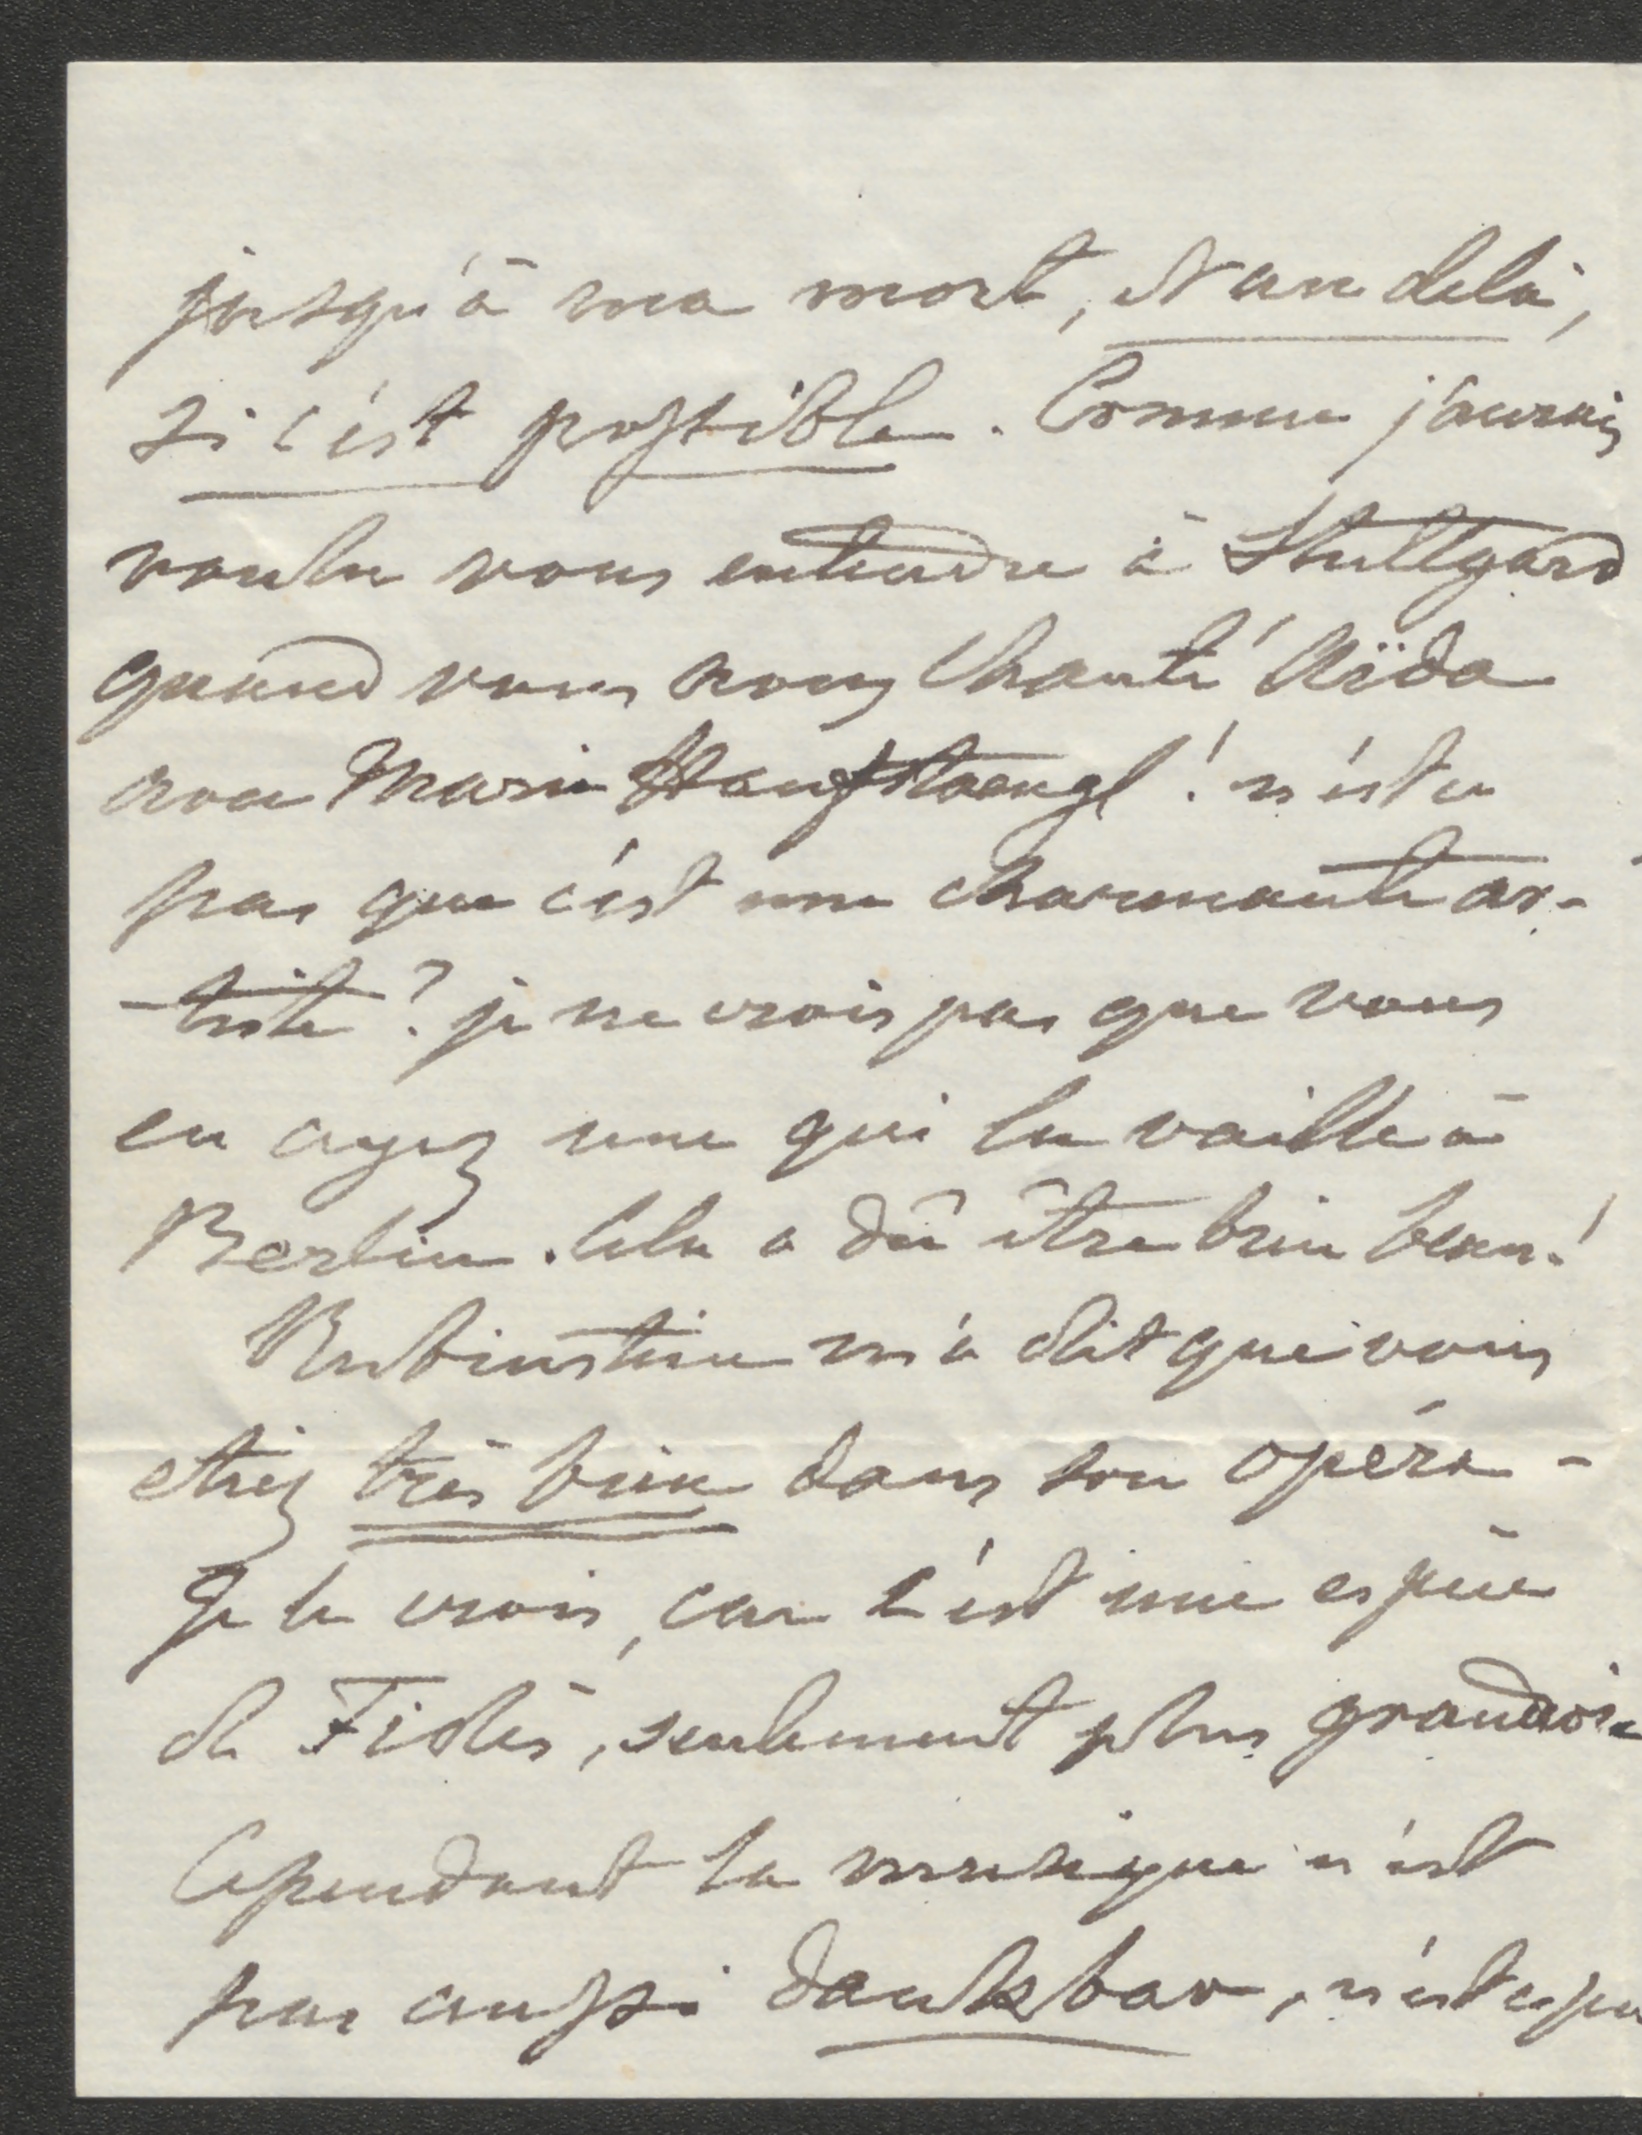 jusqu'à ma mort, et au delà,
si c'est possible. Comme j'aurais
voulu vous entendre à Stuttgard
quand vous avez chanté Aïda
avec Marie Hanfstaengl! n'est ce
pas que c'est une charmante ar-
-tiste? je ne crois pas que vous
en ayez une qui la vaille à
Berlin. Cela a dû être bien beau!
Rubinstein m'a dit que vous
etiez très bien dans son opéra -
Je le crois, car c'est une espèce
de Fidès, seulement plus grandiose
Cependant la musique n'est
pas aussi dankbar, n'est ce pas